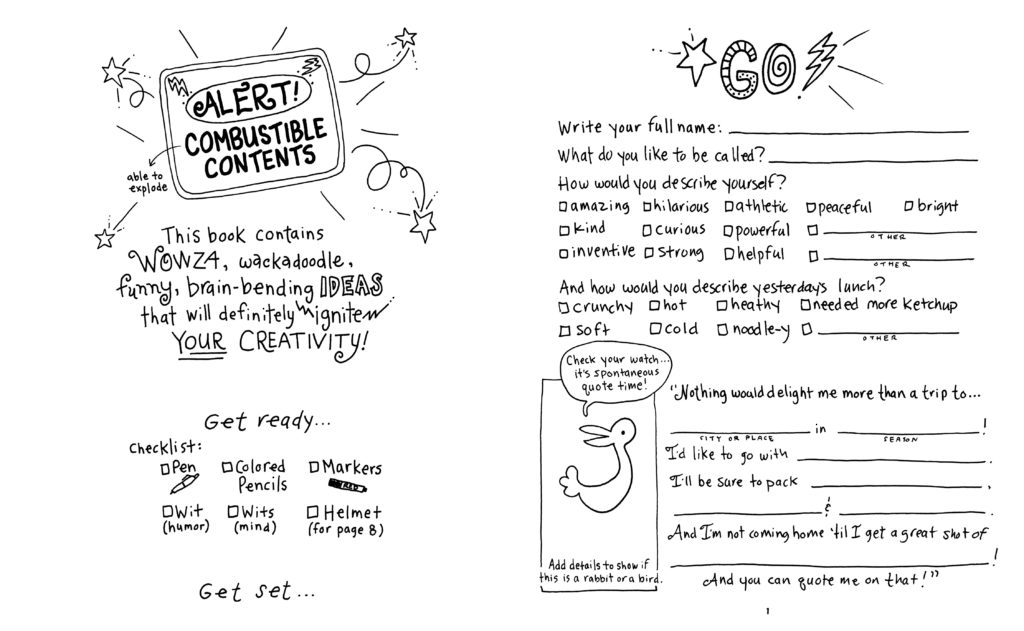 ALERT!
COMBUSTIBLE
CONTENTS
able to
explode
This book contains
WOWZA, wackadoodle,
funny, brain-bending IDEAS
that will definitely ignite
YOUR CREATIVITY!
Get ready...
Checklist:
Pen Colored Markers
Pencils
RED
Wit Wits Helmet
(humor) (mind) (for page 8)
Get set...
GO!
Write your full name:
What do you like to be called?
How would you describe yourself?
amazing hilarious athletic peaceful bright
kind curious powerful
OTHER
inventive strong helpful
OTHER
And how would you describe yesterday's lunch?
crunchy hot heathy needed more ketchup
soft cold noodle-y
OTHER
Check your watch...
it's spontaneous
quote time!
Add details to show if
this is a rabbit or a bird.
"Nothing would delight me more than a trip to...
in !
CITY OR PLACE SEASON
I'd like to go with .
I'll be sure to pack ,
& .
And I'm not coming home 'til I get a great shot of
!
And you can quote me on that!"
1